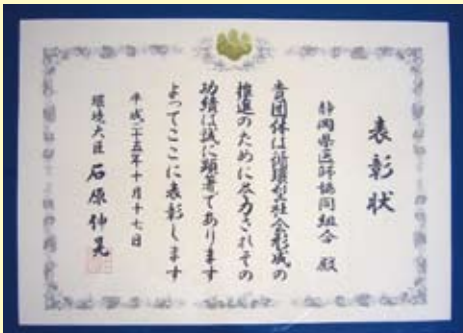 表彰状
静岡県医師協同組合 殿
貴団体は循環型社会形成の
推進のために尽力されその
功績は誠に顕著であります
よってここに表彰します
平成二十五年十月十七日
環境大臣 石原伸晃